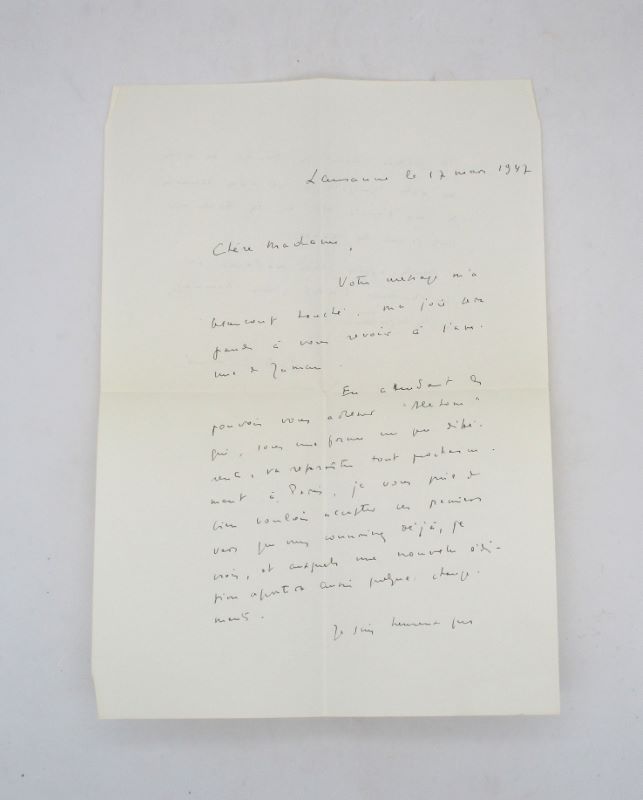 Lausanne le 17 mars 1947
Chère Madame,
Votre message m'a
beaucoup touché. Ma joie sera
grande à vous revoir à l'ave-
nue de Jaman.
En attendant de
pouvoir vous adresser
qui, sous une forme un peu diffé-
rente, va reparaître tout prochaine-
ment à Paris, je vous prie de
bien vouloir accepter ces premiers
vers que vous connaissez déjà, je
crois, et auxquels une nouvelle édi-
tion apportera aussi quelques change-
ments.
Je suis heureux que